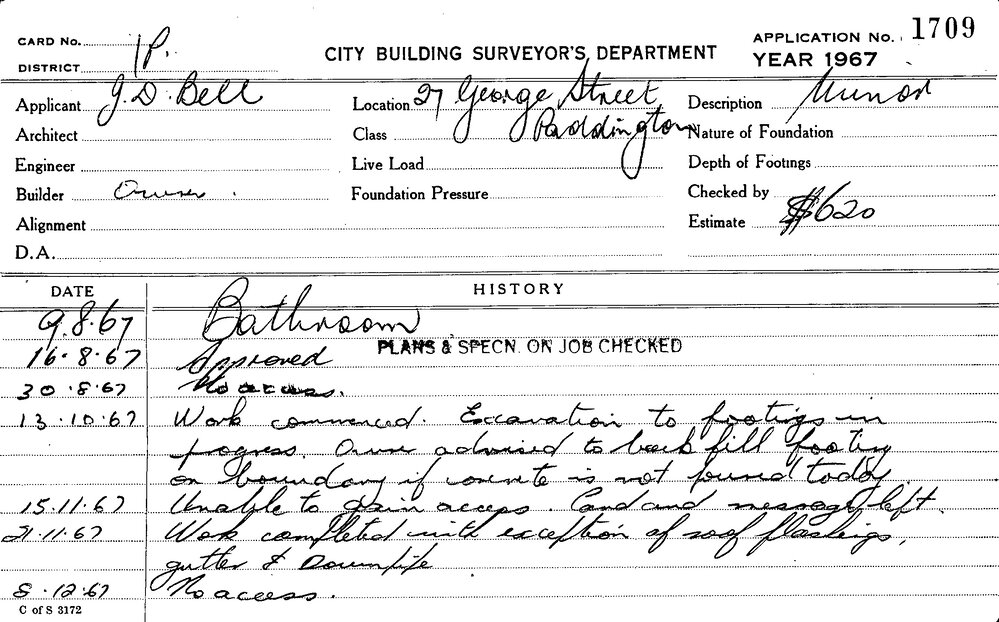 CARD No. 1P.
DISTRICT
CITY BUILDING SURVEYOR'S DEPARTMENT
APPLICATION No. 1709
YEAR 1967
Applicant J. D. Bell
Location 27 George Street
Paddington
Description Minor
Architect
Class
Nature of Foundation
Engineer
Live Load
Depth of Footings
Builder Owner.
Foundation Pressure
Checked by
Alignment
Estimate $620
D.A.
DATE
HISTORY
9.8.67 Bathroom
PLANS & SPECN. ON JOB CHECKED
16.8.67 Approved
30.8.67 No access.
13.10.67 Work commenced. Excavation to footings in
progress. Owner advised to back fill footing
on boundary if concrete is not poured today.
15.11.67 Unable to gain access. Card and message left.
21.11.67 Work completed with exception of roof flashings,
gutter & Downpipe
8.12.67 No access.
C of S 3172